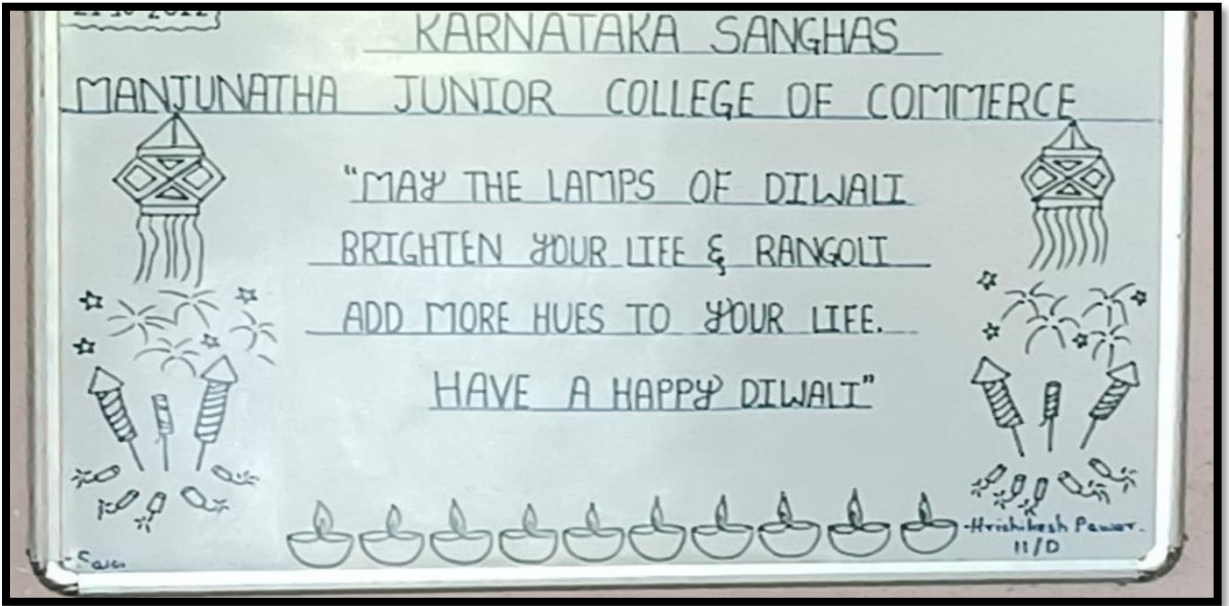 21-10-2022
KARNATAKA SANGHAS
MANJUNATHA JUNIOR COLLEGE OF COMMERCE
"MAY THE LAMPS OF DIWALI
BRIGHTEN YOUR LIFE & RANGOLI
ADD MORE HUES TO YOUR LIFE.
HAVE A HAPPY DIWALI"
-Hrishikesh Pawar.
11/D